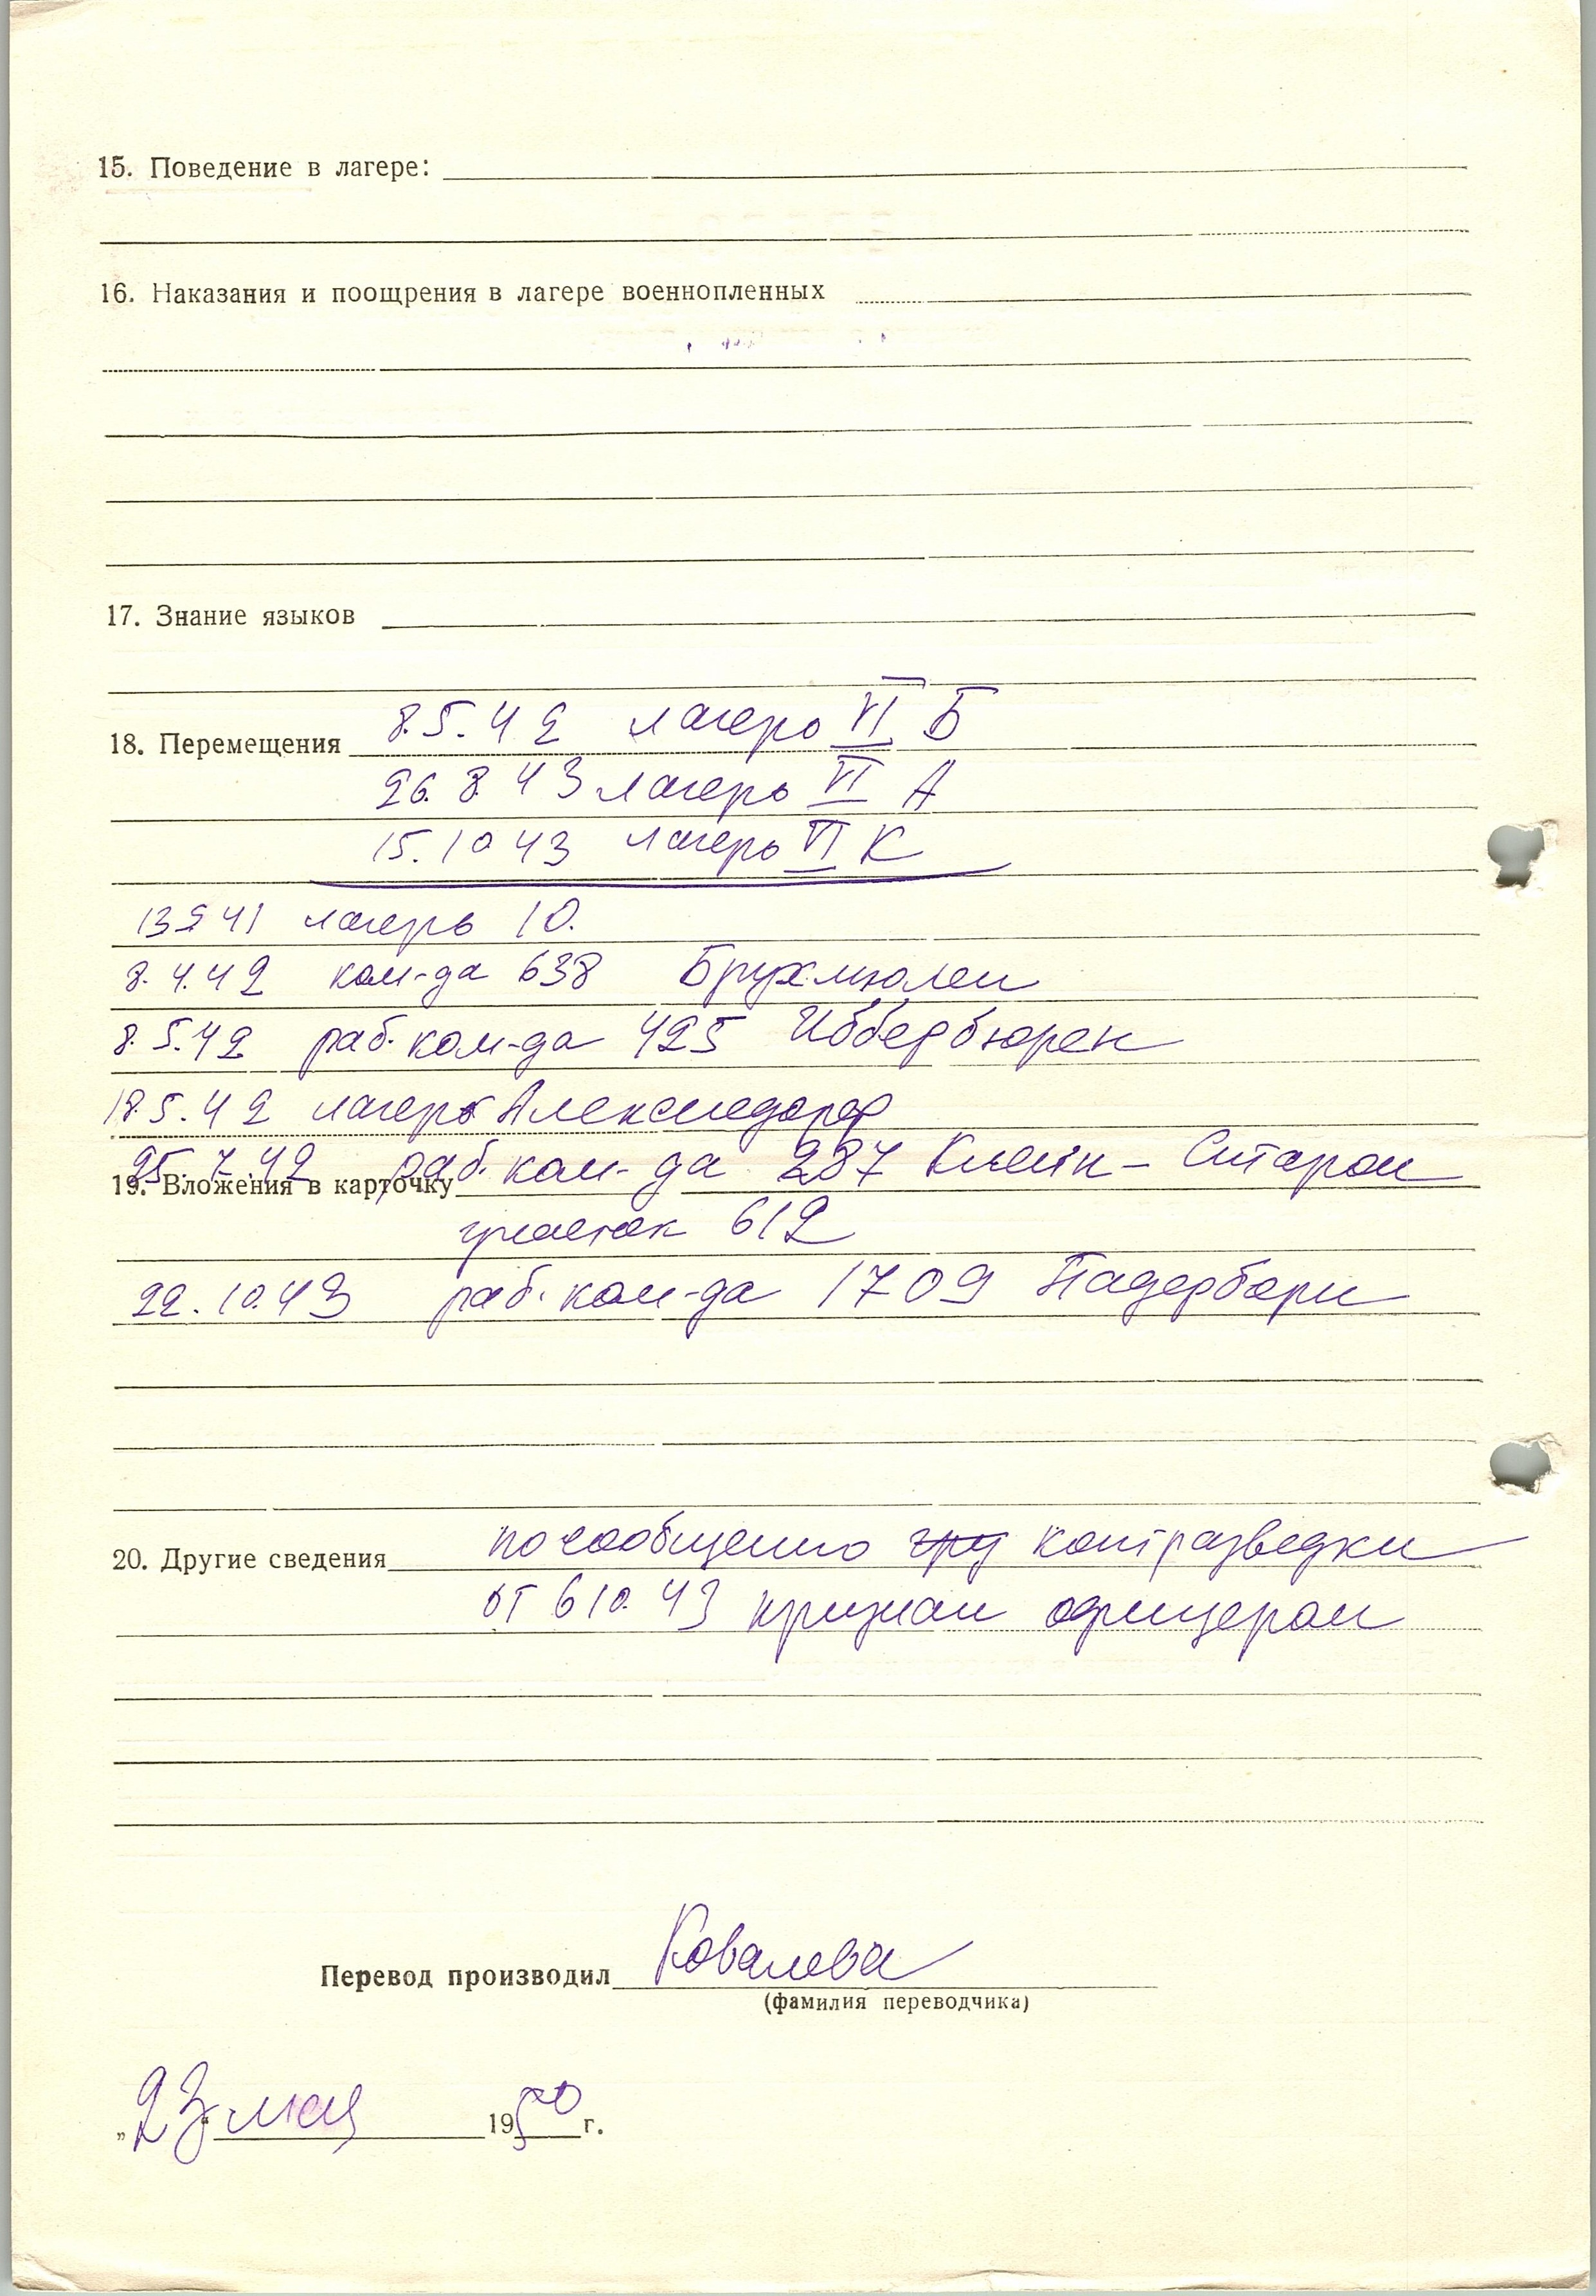 15. Поведение в лагере:
16. Наказания и поощрения в лагере военнопленных
17. Знание языков
18. Перемещения 8.5.42 лагерь VI Б
26.8.43 лагерь VI А
15.10 43 лагерь VI К
13 9 41 лагерь 10.
8.4.42 ком-да 638 Брухмюлен
8.5.42 раб. ком-да 425 Иббербюрен
18.5.42 лагерь Александорф
25.7.42 раб. ком-да 287 Клейн-
19. Вложения в карточку
участок 612
22.10.43 раб. ком-да 1709 Падерборн
20. Другие сведения по сообщению гру контразведки
от 6 10.43 признан офицером
Перевод производил Ковалева
(фамилия переводчика)
„23“ мая 1950 г.